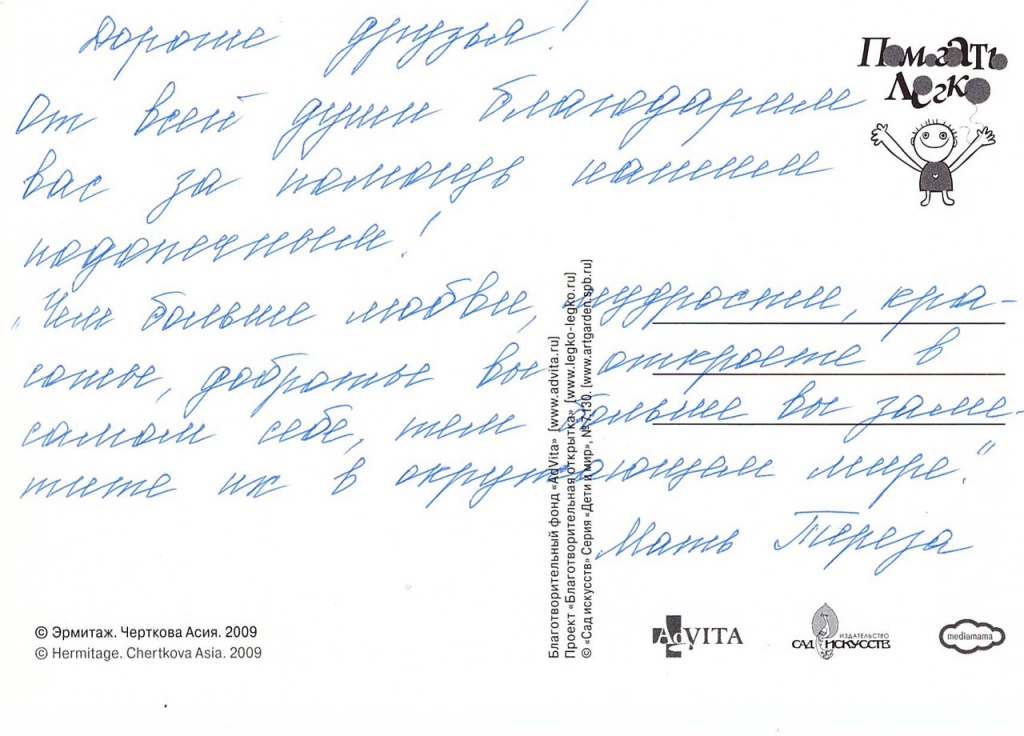 Дорогие друзья!
От всей души благодарим
вас за помощь нашим
подопечным!
"Чем больше любви, мудрости, кра-
соты, доброты вы откроете в
самом себе, тем больше вы заме-
тите их в окружающем мире."
Мать Тереза
Помогать
Легко
Благотворительный фонд «AdVita» [www.advita.ru]
Проект «Благотворительная открытка» [www.legko-legko.ru]
© «Сад искусств» Серия «Дети и мир», № 7.130. [www.artgarden.spb.ru]
© Эрмитаж. Черткова Асия. 2009
© Hermitage. Chertkova Asia. 2009
AdVITA
ИЗДАТЕЛЬСТВО
САД ИСКУССТВ
mediamama